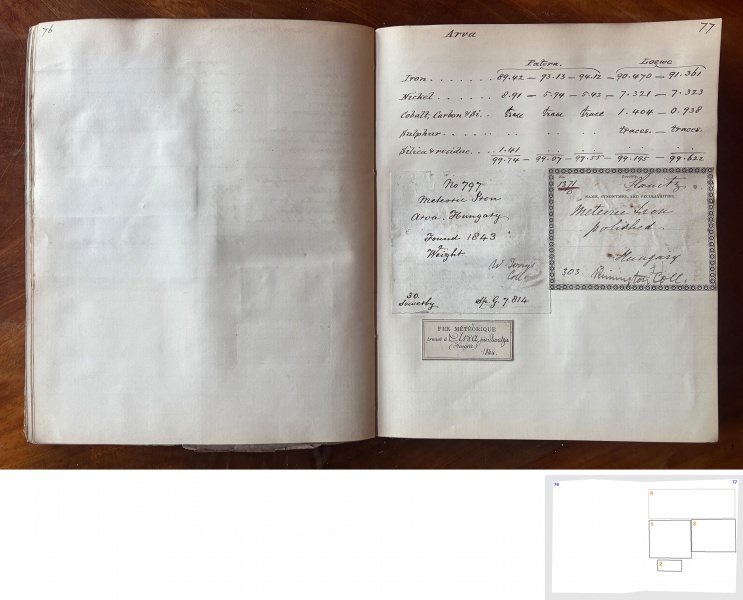 76
77
Arva
Patera. Loewe
Iron . . . . . . . 89.42 — 93.13 — 94.12 — 90.470 — 91.361
Nickel . . . . . . . 8.91 — 5.94 — 5.43 — 7.321 — 7.323
Cobalt, Carbon & Si. . trace trace trace 1.404 — 0.938
Sulphur . . . . . . . . . . . traces. — traces.
Silica & residue . . 1.41 . . . . . . . .
99.74 — 99.07 — 99.55 — 99.195 — 99.622
No 797
Meteoric Iron
Arva. Hungary.
Found 1843
Weight
Coll
30.
Sowerby Sp. G. 7.814
1371
NAME, SYNONYMES, AND PECULIARITIES.
Meteoric Iron
polished.
Hungary
303 Rimington Coll.
FER MÉTÉORIQUE
trouvé à Arva, près
(Hongrie)
1844.
76
77
1
2
3